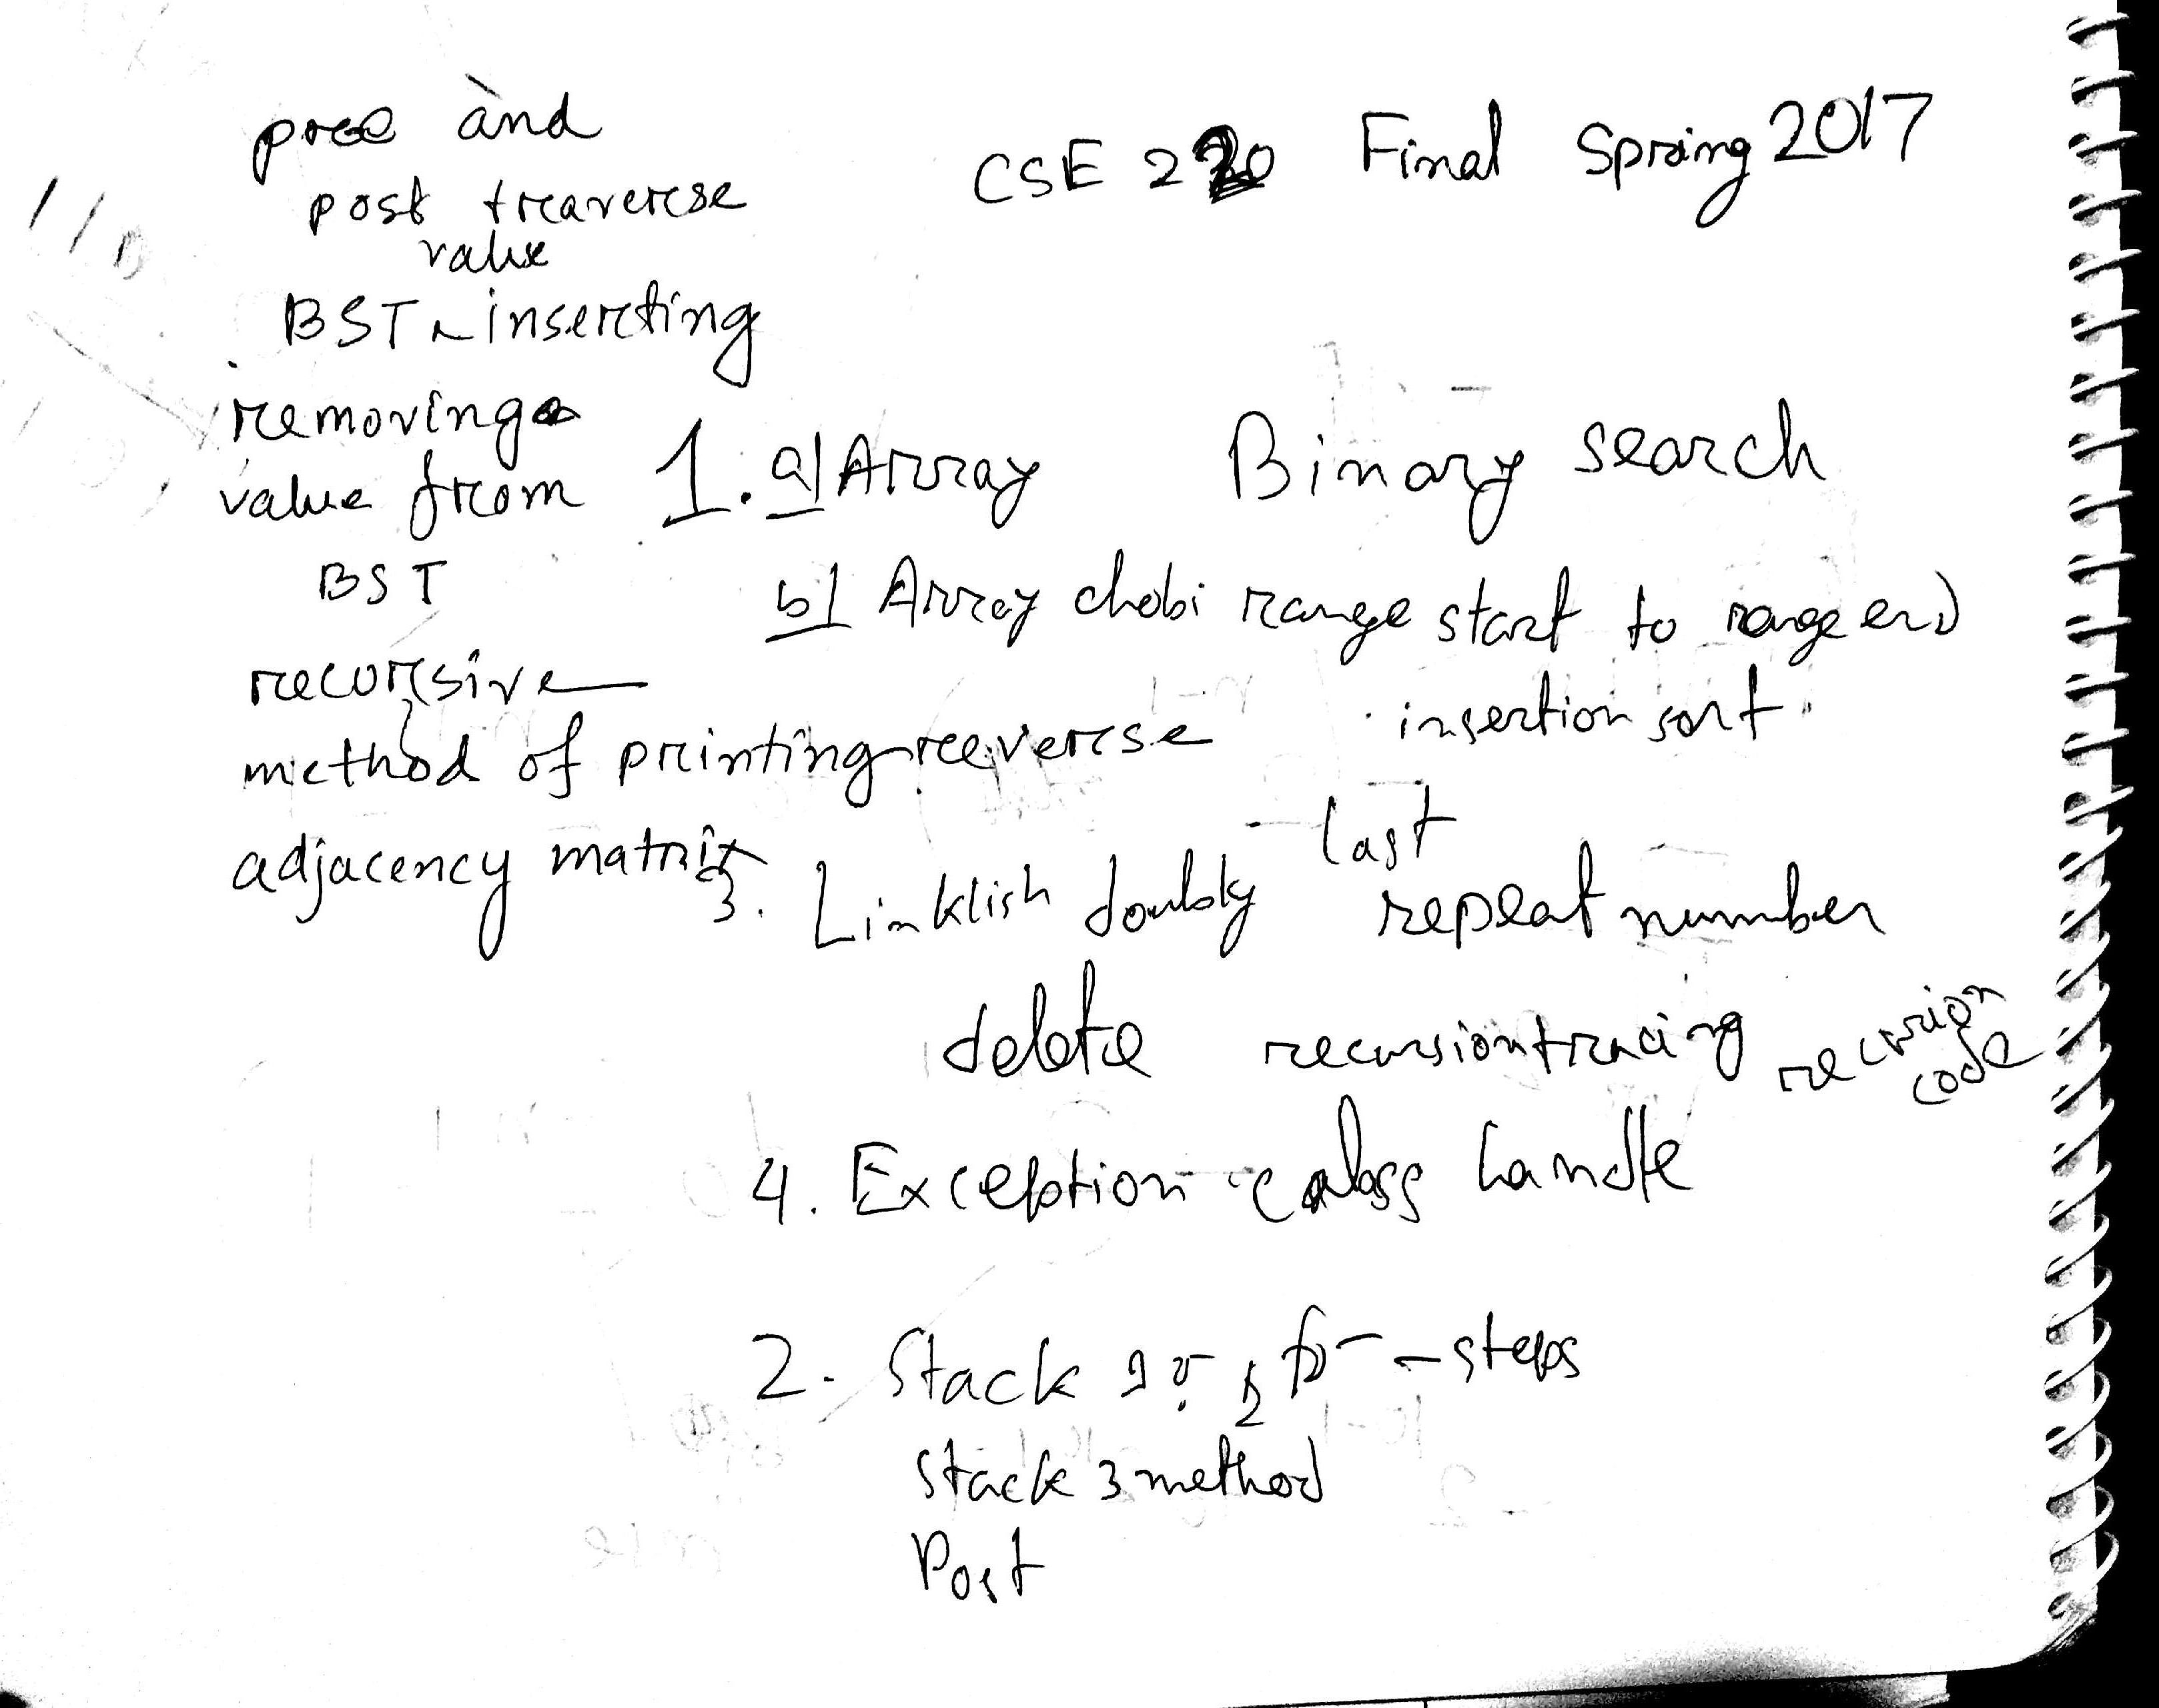 pree and
post traverse
value
BST inserting
removing
value from
BST
recursive
method of printing reverse
adjacency matrix
CSE 220 Final Spring 2017
1. a) Array Binary search
b) Array chobi range start to range end
insertion sort
3. Linklish doubly last
repeat number
delete recursion tracing recursion
code
4. Exception class handle
2. Stack - steps
Stack 3 method
Post